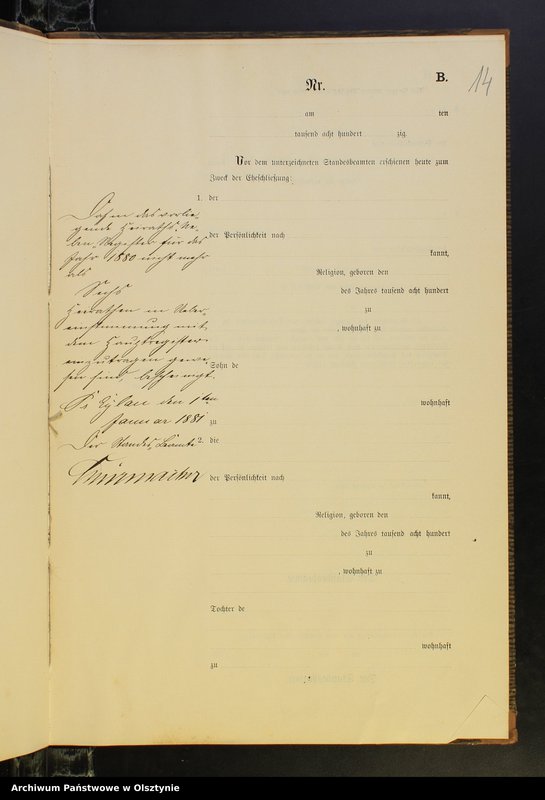 B.
14
Nr.
am ten
tausend acht hundert zig
Vor dem unterzeichneten Standesbeamten erschienen heute zum
Zweck der Eheschließung:
1. der
der Persönlichkeit nach
kannt,
Religion, geboren den
des Jahres tausend acht hundert
zu
, wohnhaft zu
Sohn de
wohnhaft
zu
2. die
der Persönlichkeit nach
kannt,
Religion, geboren den
des Jahres tausend acht hundert
zu
, wohnhaft zu
Tochter de
wohnhaft
zu
Daß in das vorlie-
gende Heiraths-Ne-
ben-Register für das
Jahr 1880 nicht mehr
als
Sechs
Heirathen in Ueber-
einstimmung mit
dem Hauptregister
einzutragen gewe-
sen sind, bescheinigt.
Pr Eylau den 1ten
Januar 1881
Der Standes-Beamte
Archiwum Państwowe w Olsztynie